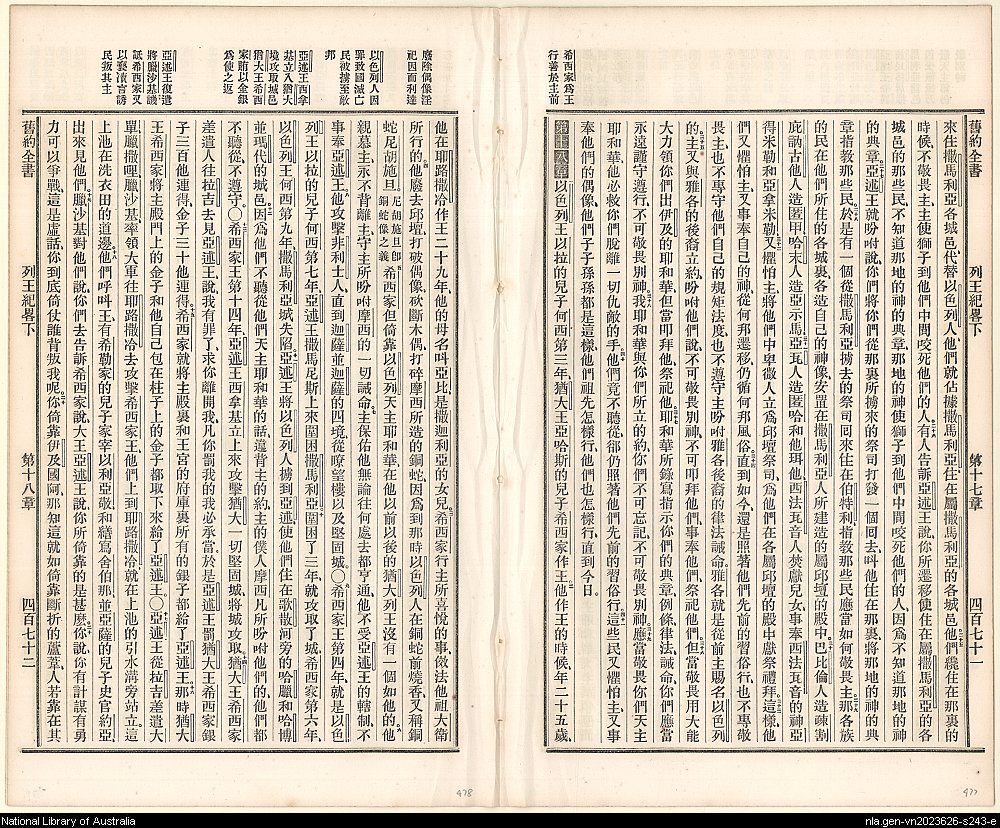 舊約全書 列王紀畧下 第十七章 四百七十一
希西家爲王
行善於主前
來住撒馬利亞各城邑代替以色列人他們就佔據撒馬利亞住在屬撒馬利亞的各城邑他們纔住在那裏的
時候不敬畏主主使獅子到他們中間咬死他們的人有人告訴亞述王說你所遷移使住在屬撒馬利亞的各
城邑的那些民不知道那地的神的典章那地的神使獅子到他們中間咬死他們的人因爲不知道那地的神
的典章亞述王就吩咐說你們將你們從那裏所擄來的祭司打發一個回去叫他住在那裏將那地的神的典
章指教那些民於是有一個從撒馬利亞擄去的祭司回來住在伯特利指教那些民應當如何敬畏主那各族
的民在他們所住的各城裏各造自己的神像安置在撒馬利亞人所建造的屬邱壇的殿中巴比倫人造疎割
庇訥古他人造匿甲哈末人造亞示馬亞瓦人造匿哈和他珥他西法瓦音人焚獻兒女事奉西法瓦音的神亞
得米勒和亞拿米勒又懼怕主將他們中卑微人立爲邱壇祭司爲他們在各屬邱壇的殿中獻祭禮拜這樣他
們又懼怕主又事奉自己的神從何邦遷移仍循何邦風俗直到如今還是照著他們先前的習俗行也不專敬
畏主也不專守他們自己的規矩法度也不遵守主吩咐雅各後裔的律法誡命雅各就是從前主賜名以色列
的主又與雅各的後裔立約吩咐他們說不可敬畏別神不可叩拜他們事奉他們祭祀他們但當敬畏用大能
大力領你們出伊及的耶和華但當叩拜他祭祀他耶和華所錄寫指示你們的典章例條律法誡命你們應當
永遠謹守遵行不可敬畏別神我耶和華與你們所立的約你們不可忘記不可敬畏別神應當敬畏你們天主
耶和華他必救你們脫離一切仇敵的手他們竟不聽從卻仍照著他們先前的習俗行這些民又懼怕主又事
奉他們的偶像他們子子孫孫都是這樣他們祖先怎樣行他們也怎樣行直到今日
第十八章 以色列王以拉的兒子何西第三年猶大王亞哈斯的兒子希西家作王他作王的時候年二十五歲
廢除偶像淫
祀因而利達
以色列人因
罪致國滅亡
民被擄至敵
邦
亞述王西拿
基立入猶大
境攻取城邑
猶大王希西
家賄以金銀
爲使之返
亞述王復遣
將臘沙基譏
詆希西家又
以褻瀆言誘
民叛其主
他在耶路撒冷作王二十九年他的母名叫亞比是撒迦利亞的女兒希西家行主所喜悅的事倣法他祖大衛
所行的他廢去邱壇打破偶像砍斷木偶打碎摩西所造的銅蛇因爲到那時以色列人在銅蛇前燒香又稱銅
蛇尼胡施旦 尼胡施旦卽銅蛇像之義 希西家但倚靠以色列天主耶和華在他以前以後的猶大列王沒有一個如他的他
親慕主永不背離主守主所吩咐摩西的一切誡命主保佑他無論往何處去都亨通他不受亞述王的轄制不
事奉亞述王他攻擊非利士人直到迦薩並迦薩的四境從嘹望樓以及堅固城〇希西家王第四年就是以色
列王以拉的兒子何西第七年亞述王撒馬尼斯上來圍困撒馬利亞圍困了三年就攻取了城希西家第六年
以色列王何西第九年撒馬利亞城失陷亞述王將以色列人擄到亞述使他們住在歌散河旁的哈臘和哈博
並瑪代的城邑因爲他們不聽從他們天主耶和華的話違背主的約主的僕人摩西凡所吩咐他們的他們都
不聽從不遵守〇希西家王第十四年亞述王西拿基立上來攻擊猶大一切堅固城將城攻取猶大王希西家
差遣人往拉吉去見亞述王說我有罪了求你離開我凡你罰我的我必承當於是亞述王罰猶大王希西家銀
子三百他連得金子三十他連得希西家就將主殿裏和王宮的府庫裏所有的銀子都給了亞述王那時猶大
王希西家將主殿門上的金子和他自己包在柱子上的金子都取下來給了亞述王〇亞述王從拉吉差遣大
單臘撒哩臘沙基率領大軍往耶路撒冷去攻擊希西家王他們上到耶路撒冷就在上池的引水溝旁站立這
上池在洗衣田的道邊他們呼叫王有希勒家的兒子家宰以利亞敬和繕寫舍伯那並亞薩的兒子史官約亞
出來見他們臘沙基對他們說你們去告訴希西家說大王亞述王說你所倚靠的是甚麼你說你有計謀有勇
力可以爭戰這是虛話你到底倚仗誰背叛我呢你倚靠伊及國阿那知這就如倚靠斷折的蘆葦人若靠在其
舊約全書 列王紀畧下 第十八章 四百七十二
478
477
National Library of Australia
nla.gen-vn2023626-s243-e